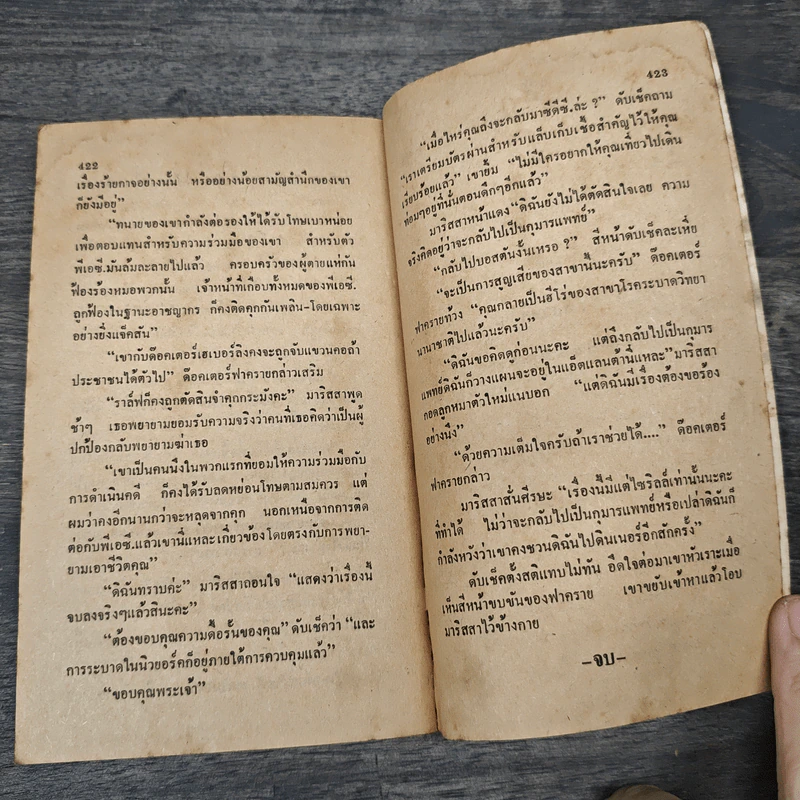 422
เรื่องร้ายกาจอย่างนั้น หรืออย่างน้อยสามัญสำนึกของเขา
ก็ยังมีอยู่”
“ทนายของเขากำลังต่อรองให้ได้รับโทษเบาหน่อย
เพื่อตอบแทนสำหรับความร่วมมือของเขา สำหรับตัว
พีเอซี.มันล้มละลายไปแล้ว ครอบครัวของผู้ตายแห่กัน
ฟ้องร้องหมอพวกนั้น เจ้าหน้าที่เกือบทั้งหมดของพีเอซี.
ถูกฟ้องในฐานะอาชญากร ก็คงติดคุกกันเพลิน-โดยเฉพาะ
อย่างยิ่งแจ็คสัน”
“เขากับด๊อคเตอร์เฮเบอร์ลิงคงจะถูกจับแขวนคอถ้า
ประชาชนได้ตัวไป” ด๊อคเตอร์ฟาครายกล่าวเสริม
“ราล์ฟก็คงถูกตัดสินจำคุกกระมังคะ” มาริสสาพูด
ช้าๆ เธอพยายามยอมรับความจริงว่าคนที่เธอคิดว่าเป็นผู้
ปกป้องกลับพยายามฆ่าเธอ
“เขาเป็นคนนึงในพวกแรกที่ยอมให้ความร่วมมือกับ
การดำเนินคดี ก็คงได้รับลดหย่อนโทษตามสมควร แต่
ผมว่าคงอีกนานกว่าจะหลุดจากคุก นอกเหนือจากการติด
ต่อกับพีเอซี.แล้วเขานี่แหละเกี่ยวข้องโดยตรงกับการพยา-
ยามเอาชีวิตคุณ”
“ดิฉันทราบค่ะ” มาริสสาถอนใจ “แสดงว่าเรื่องนี้
จบลงจริงๆแล้วสินะคะ”
“ต้องขอบคุณความดื้อรั้นของคุณ” ดับเช็คว่า “และ
การระบาดในนิวยอร์คก็อยู่ภายใต้การควบคุมแล้ว”
“ขอบคุณพระเจ้า”
423
“เมื่อไหร่คุณถึงจะกลับมาซีดีซี.ล่ะ ?” ดับเช็คถาม
“เราเตรียมบัตรผ่านสำหรับแล็บเก็บเชื้อสำคัญไว้ให้คุณ
เรียบร้อยแล้ว” เขายิ้ม “ไม่มีใครอยากให้คุณเที่ยวไปเดิน
ท่อมๆอยู่ที่นั่นตอนดึกๆอีกแล้ว”
มาริสสาหน้าแดง “ดิฉันยังไม่ได้ตัดสินใจเลย ความ
จริงคิดอยู่ว่าจะกลับไปเป็นกุมารแพทย์”
“กลับไปบอสตันงั้นเหรอ ?” สีหน้าดับเช็คละเหี่ย
“จะเป็นการสูญเสียของสาขานี้นะครับ” ด๊อคเตอร์
ฟาครายท้วง “คุณกลายเป็นฮีโร่ของสาขาโรคระบาดวิทยา
นานาชาติไปแล้วนะครับ”
“ดิฉันขอคิดดูก่อนนะคะ แต่ถึงกลับไปเป็นกุมาร
แพทย์ดิฉันก็วางแผนจะอยู่ในแอ็ตแลนต้านี่แหละ”มาริสสา
กอดลูกหมาตัวใหม่แนบอก “แต่ดิฉันมีเรื่องต้องขอร้อง
อย่างนึง”
“ด้วยความเต็มใจครับถ้าเราช่วยได้....” ด๊อคเตอร์
ฟาครายกล่าว
มาริสสาสั่นศีรษะ “เรื่องนี้มีแต่ไซริลล์เท่านั้นนะคะ
ที่ทำได้ ไม่ว่าจะกลับไปเป็นกุมารแพทย์หรือเปล่าดิฉันก็
กำลังหวังว่าเขาคงชวนดิฉันไปดินเนอร์อีกสักครั้ง”
ดับเช็คตั้งสติแทบไม่ทัน อึดใจต่อมาเขาหัวเราะเมื่อ
เห็นสีหน้าขบขันของฟาคราย เขาขยับเข้าหาแล้วโอบ
มาริสสาไว้ข้างกาย
–จบ–